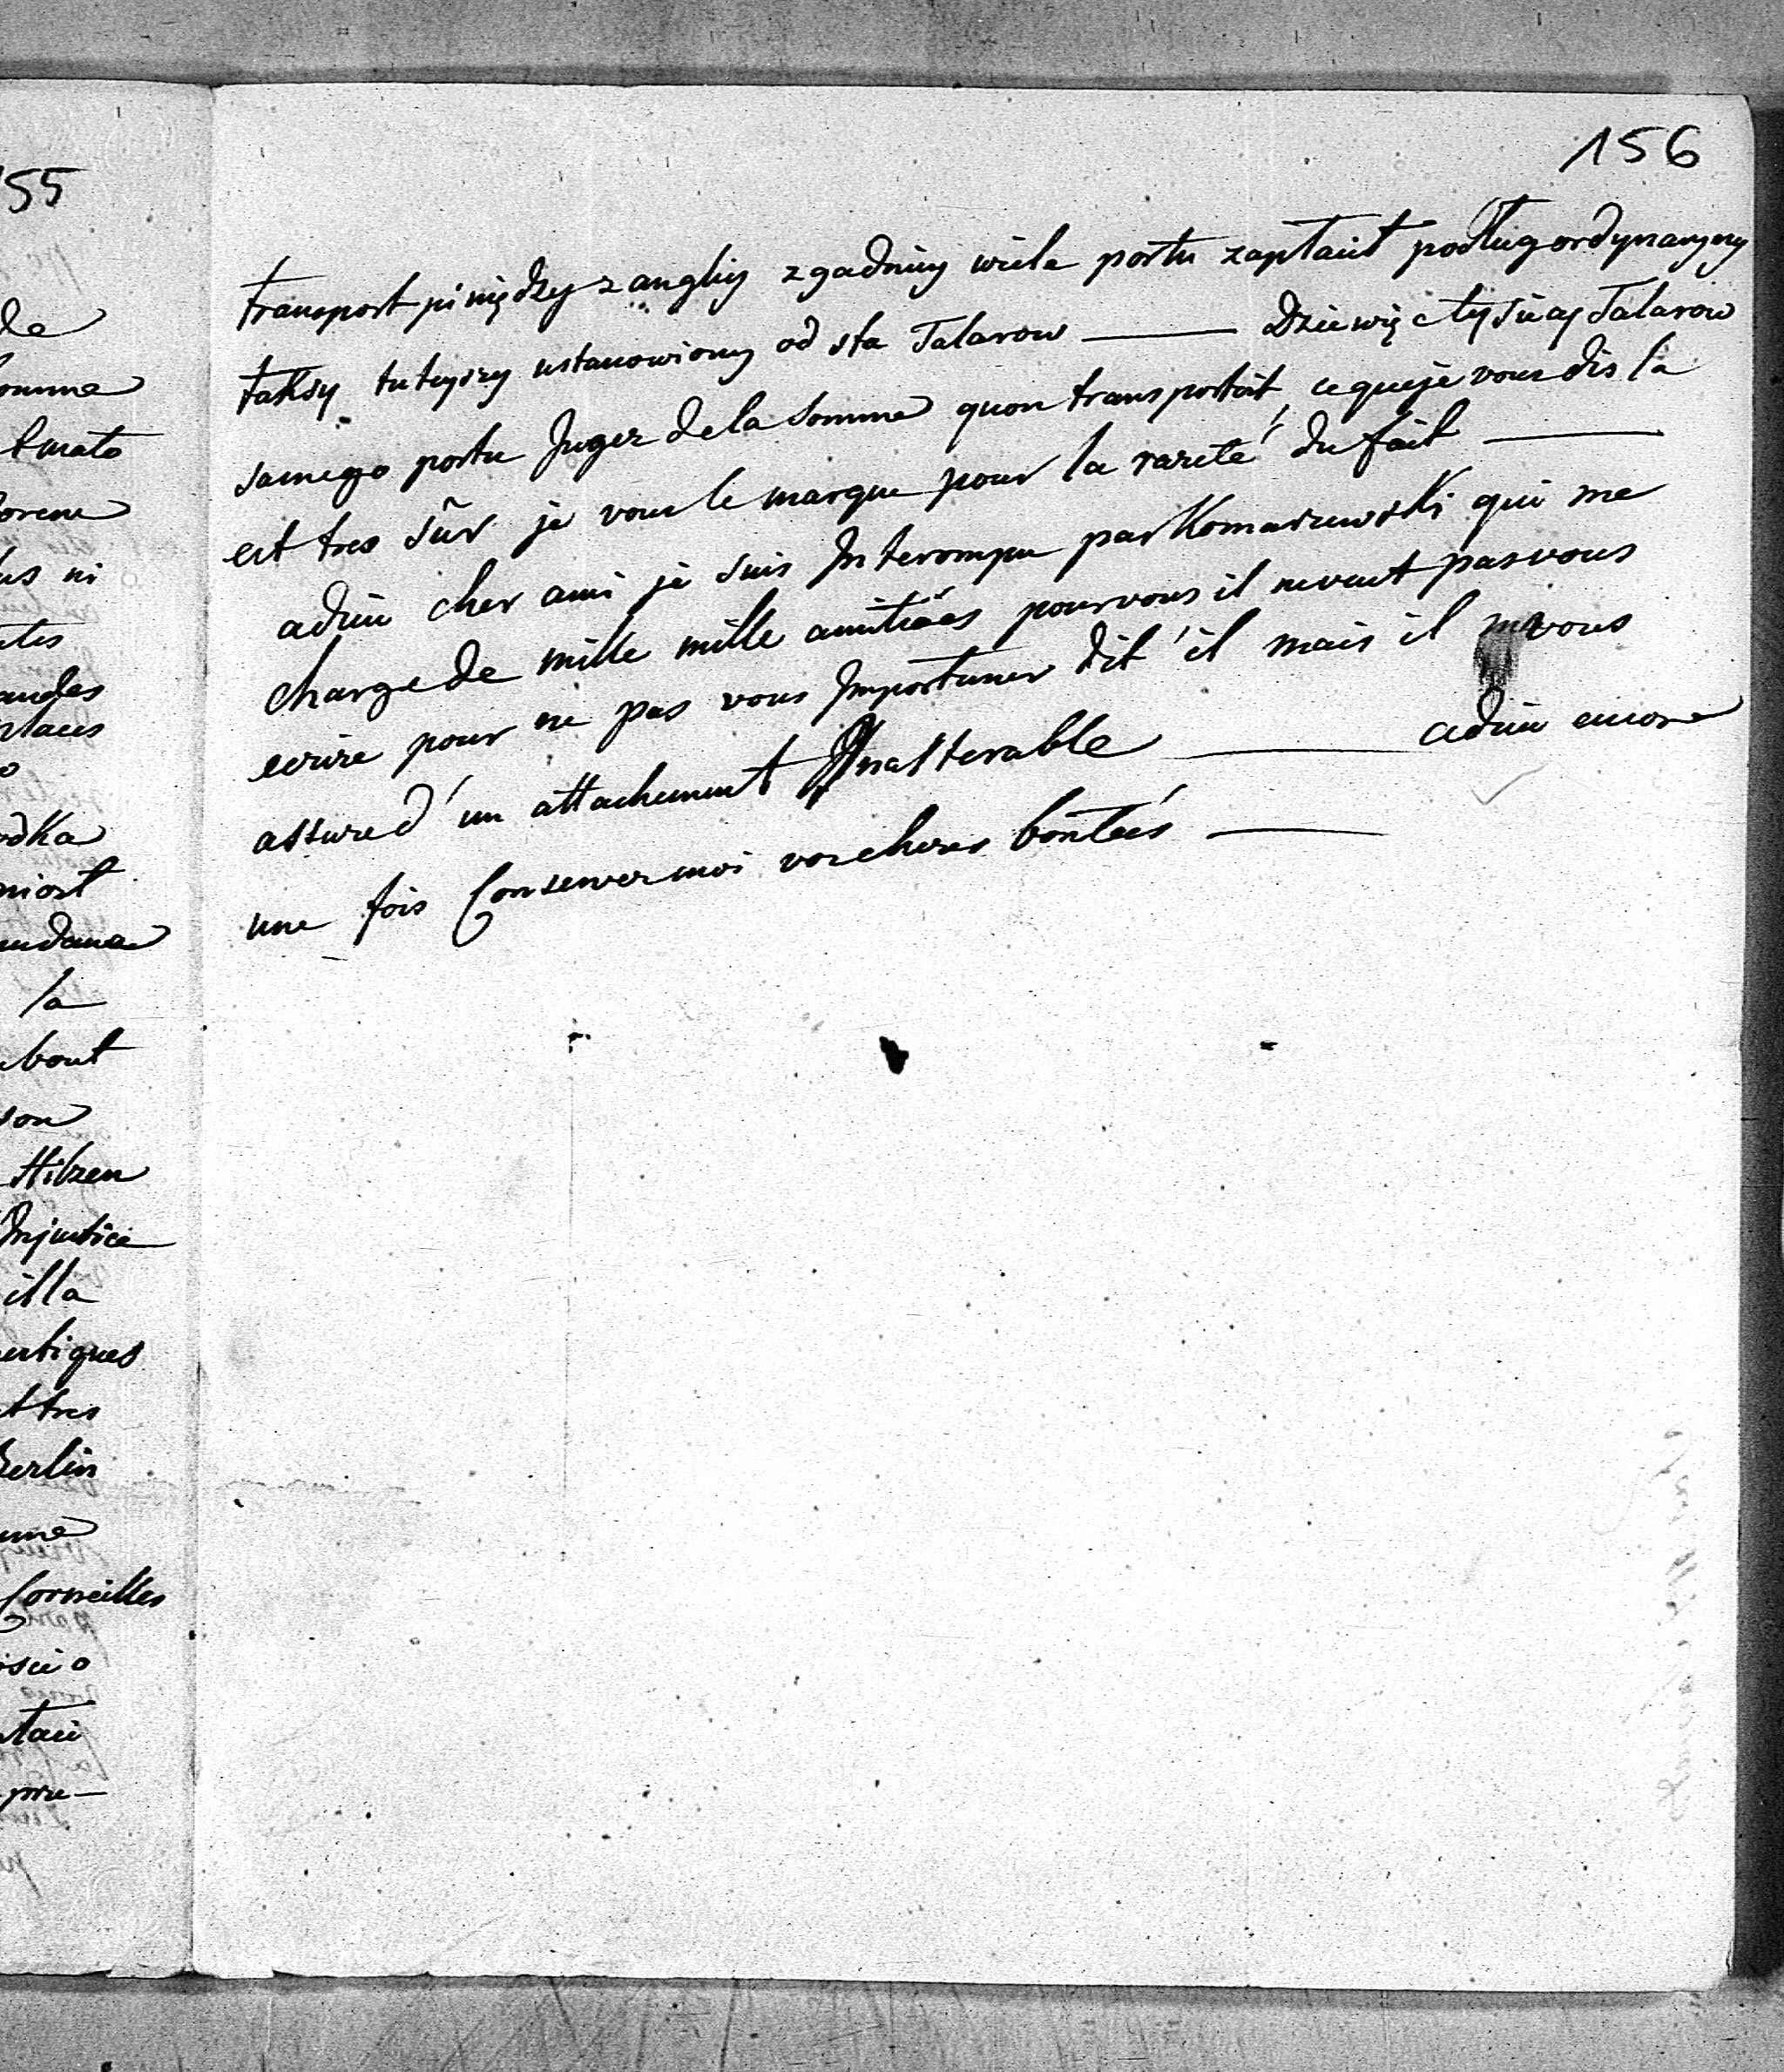 155
de
omme
t mato
orene
us ni
utes
audes
places
o
odka
niort
undance
la
bout
son
Hilzen
Injustice
illa
ertiques
ettres
Berlin
ume
Corneilles
oscio
staci
prze-
156
transport piniędzy z anglij zgadniy wiele portu zaptacit podtug ordynaryiny
taksy tuteyszy ustanowiony od sta Talarow —— Dziewięc tysiacy Talarow
samego portu Jugez de la Somme quon transportoit, ce que je vous dis la
est tres sûr je vous le marque pour la rareté du fait ——
adieu cher ami je suis Interompu par Komarzewski qui me
charge de mille mille amitiées pour vous il ne veut pas vous
ecrire pour ne pas vous Importuner dit'il mais il vous
assure d'un attachement Inalterable —— adieu encore
une fois Conservez moi vos cheres bontées ——